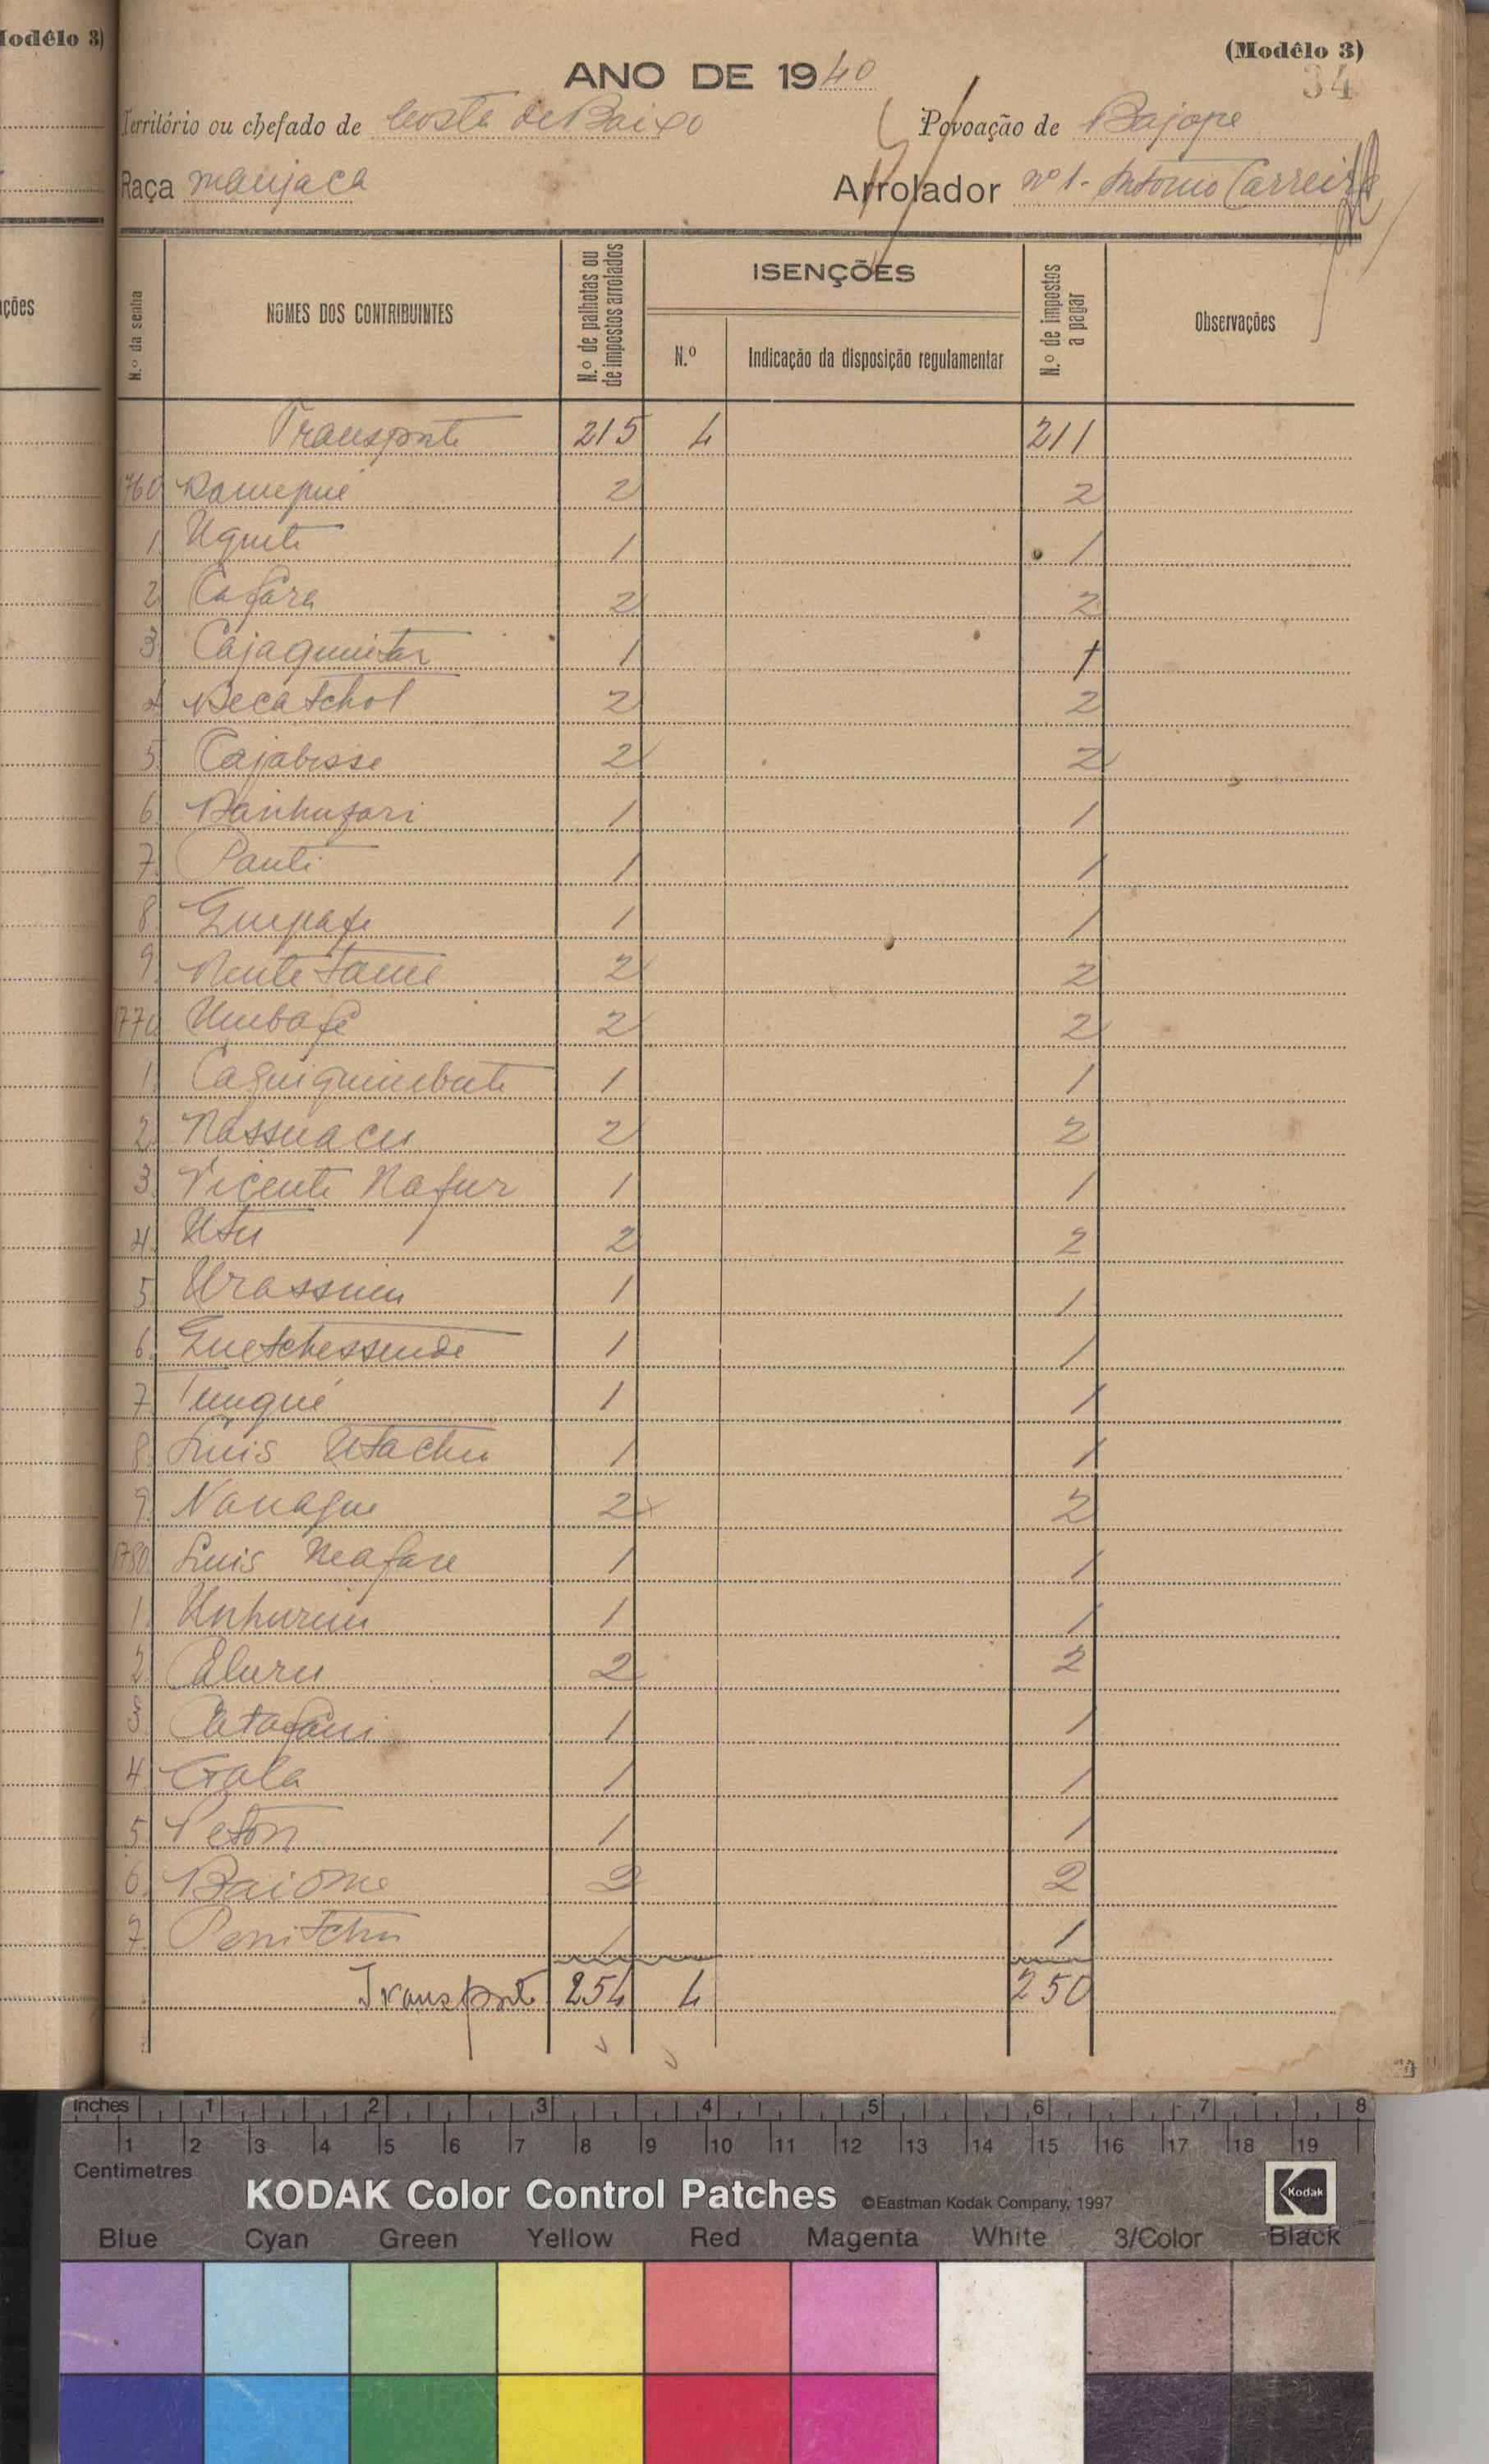 (Modêlo 3)
34
ANO DE 1940
Território ou chefado de Costa de Baixo Povoação de Bajope
Raça manjaca Arrolador nº 1 - Antonio Carreira
N.º da senha
NOMES DOS CONTRIBUINTES
N.º de palhotas ou de impostos arrolados
ISENÇÕES
N.º
Indicação da disposição regulamentar
N.º de impostos a pagar
Observações
Transporte 215 4 211
1760 2 2
1 1 1
2 Cafára 2 2
3 1 1
4 Becatchol 2 2
5 Cajabisse 2 2
6 1 1
7 Panti 1 1
8 Guepafe 1 1
9 2 2
1770 Umbafé 2 2
1 1 1
2 Nassuacu 2 2
3 Vicente Nafur 1 1
4 Utu 2 2
5 1 1
6 Guetchessende 1 1
7 1 1
8 Luis Utachu 1 1
9 2 2
1780 Luis Neafare 1 1
1 1 1
2 2 2
3 1 1
4 Gala 1 1
5 Peton 1 1
6 Baiome 2 2
7 Penitchu 1 1
Transporte 254 4 250
Modêlo 3)
ações
inches 1 2 3 4 5 6 7 8
1 2 3 4 5 6 7 8 9 10 11 12 13 14 15 16 17 18 19
Centimetres
KODAK Color Control Patches ©Eastman Kodak Company, 1997 Kodak
Blue Cyan Green Yellow Red Magenta White 3/Color Black